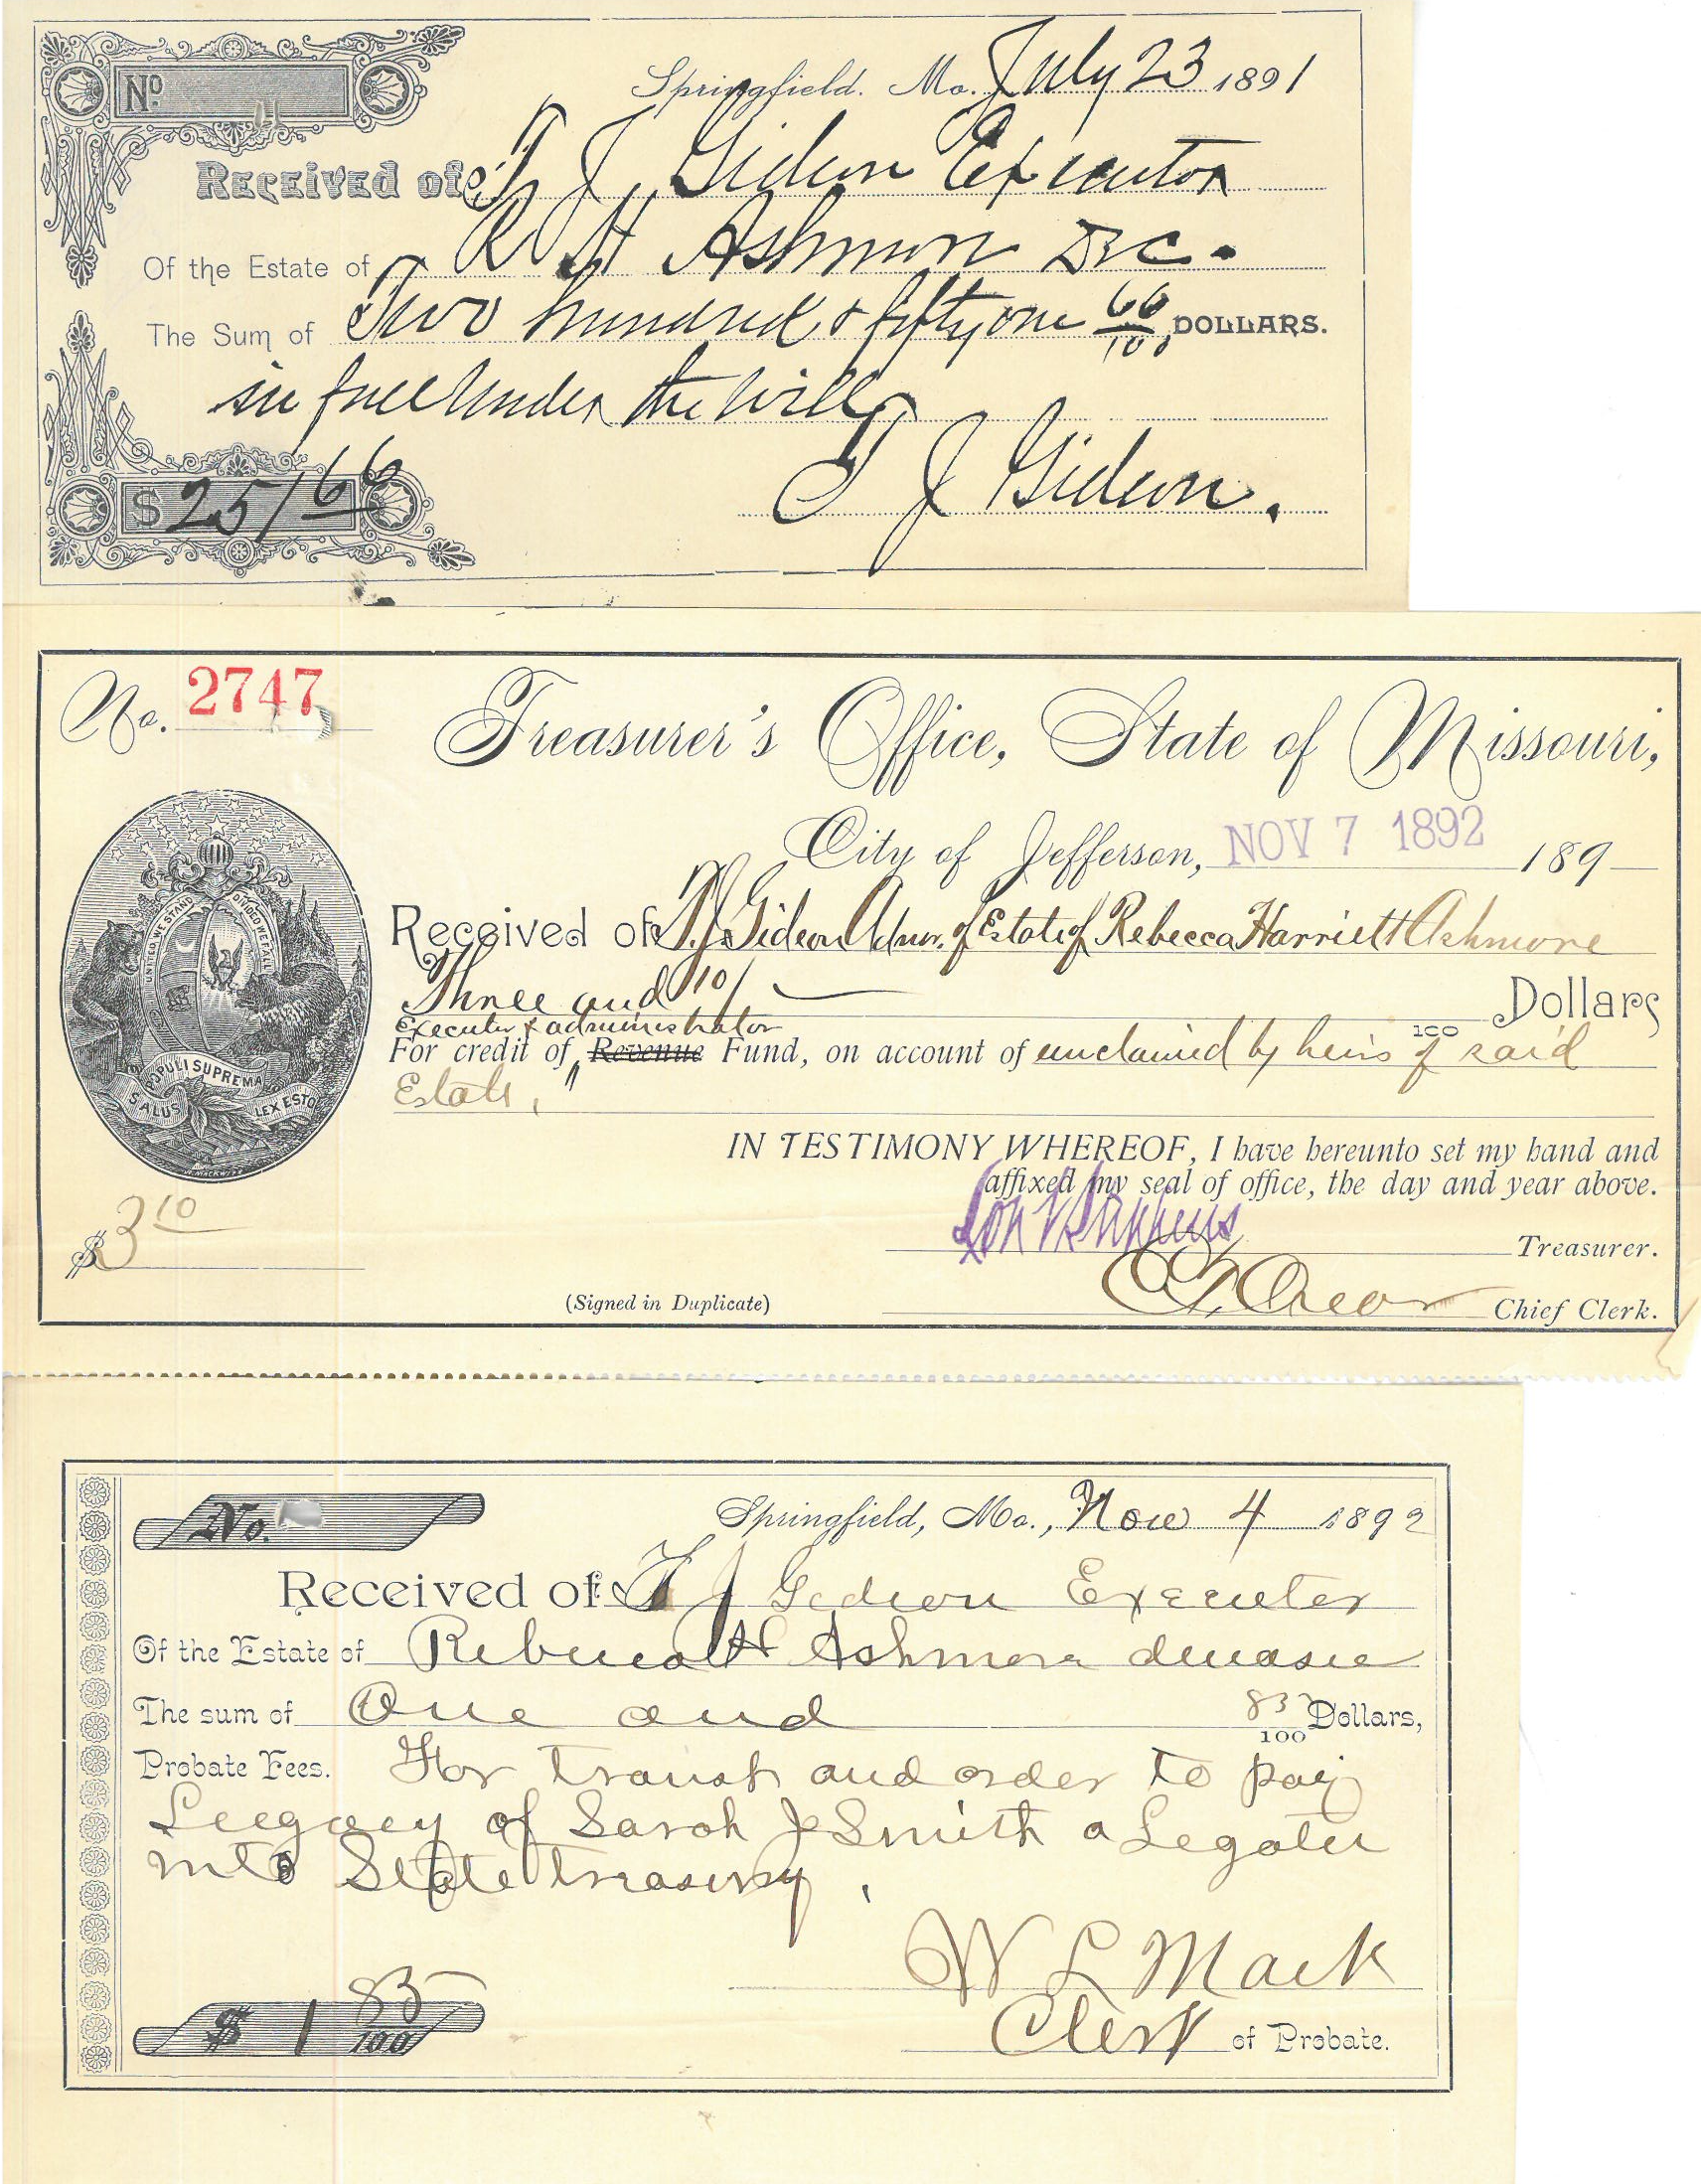 No.
Springfield. Mo. July 23 1891
Received of T J Gideon Executor
Of the Estate of R H Ashmore Dec.
The Sum of Two hundred & fifty one 66/100 DOLLARS.
in full under the will
$ 251 66
T J Gideon.
No. 2747
Treasurer's Office, State of Missouri,
City of Jefferson, NOV 7 1892 189
UNITED WE STAND DIVIDED WE FALL
Received of T.J. Gideon Admr. of Estate of Rebecca Harriett Ashmore
Three and 10/100 Dollars
Executor & administrator
For credit of Revenue Fund, on account of unclaimed by heirs of said
Estate,
SALUS POPULI SUPREMA LEX ESTO
IN TESTIMONY WHEREOF, I have hereunto set my hand and
affixed my seal of office, the day and year above.
$ 3 10
Lon V Stephens Treasurer.
(Signed in Duplicate)
Chief Clerk.
No.
Springfield, Mo., Nov 4 1892
Received of T J Gideon Executer
Of the Estate of Rebecca H Ashmore
The sum of One and /100 Dollars,
Probate Fees. For and order to pay
Legacy of Sarah J Smith a Legatee
into State treasury.
W L Mack
$ 1 /100
Clerk of Probate.